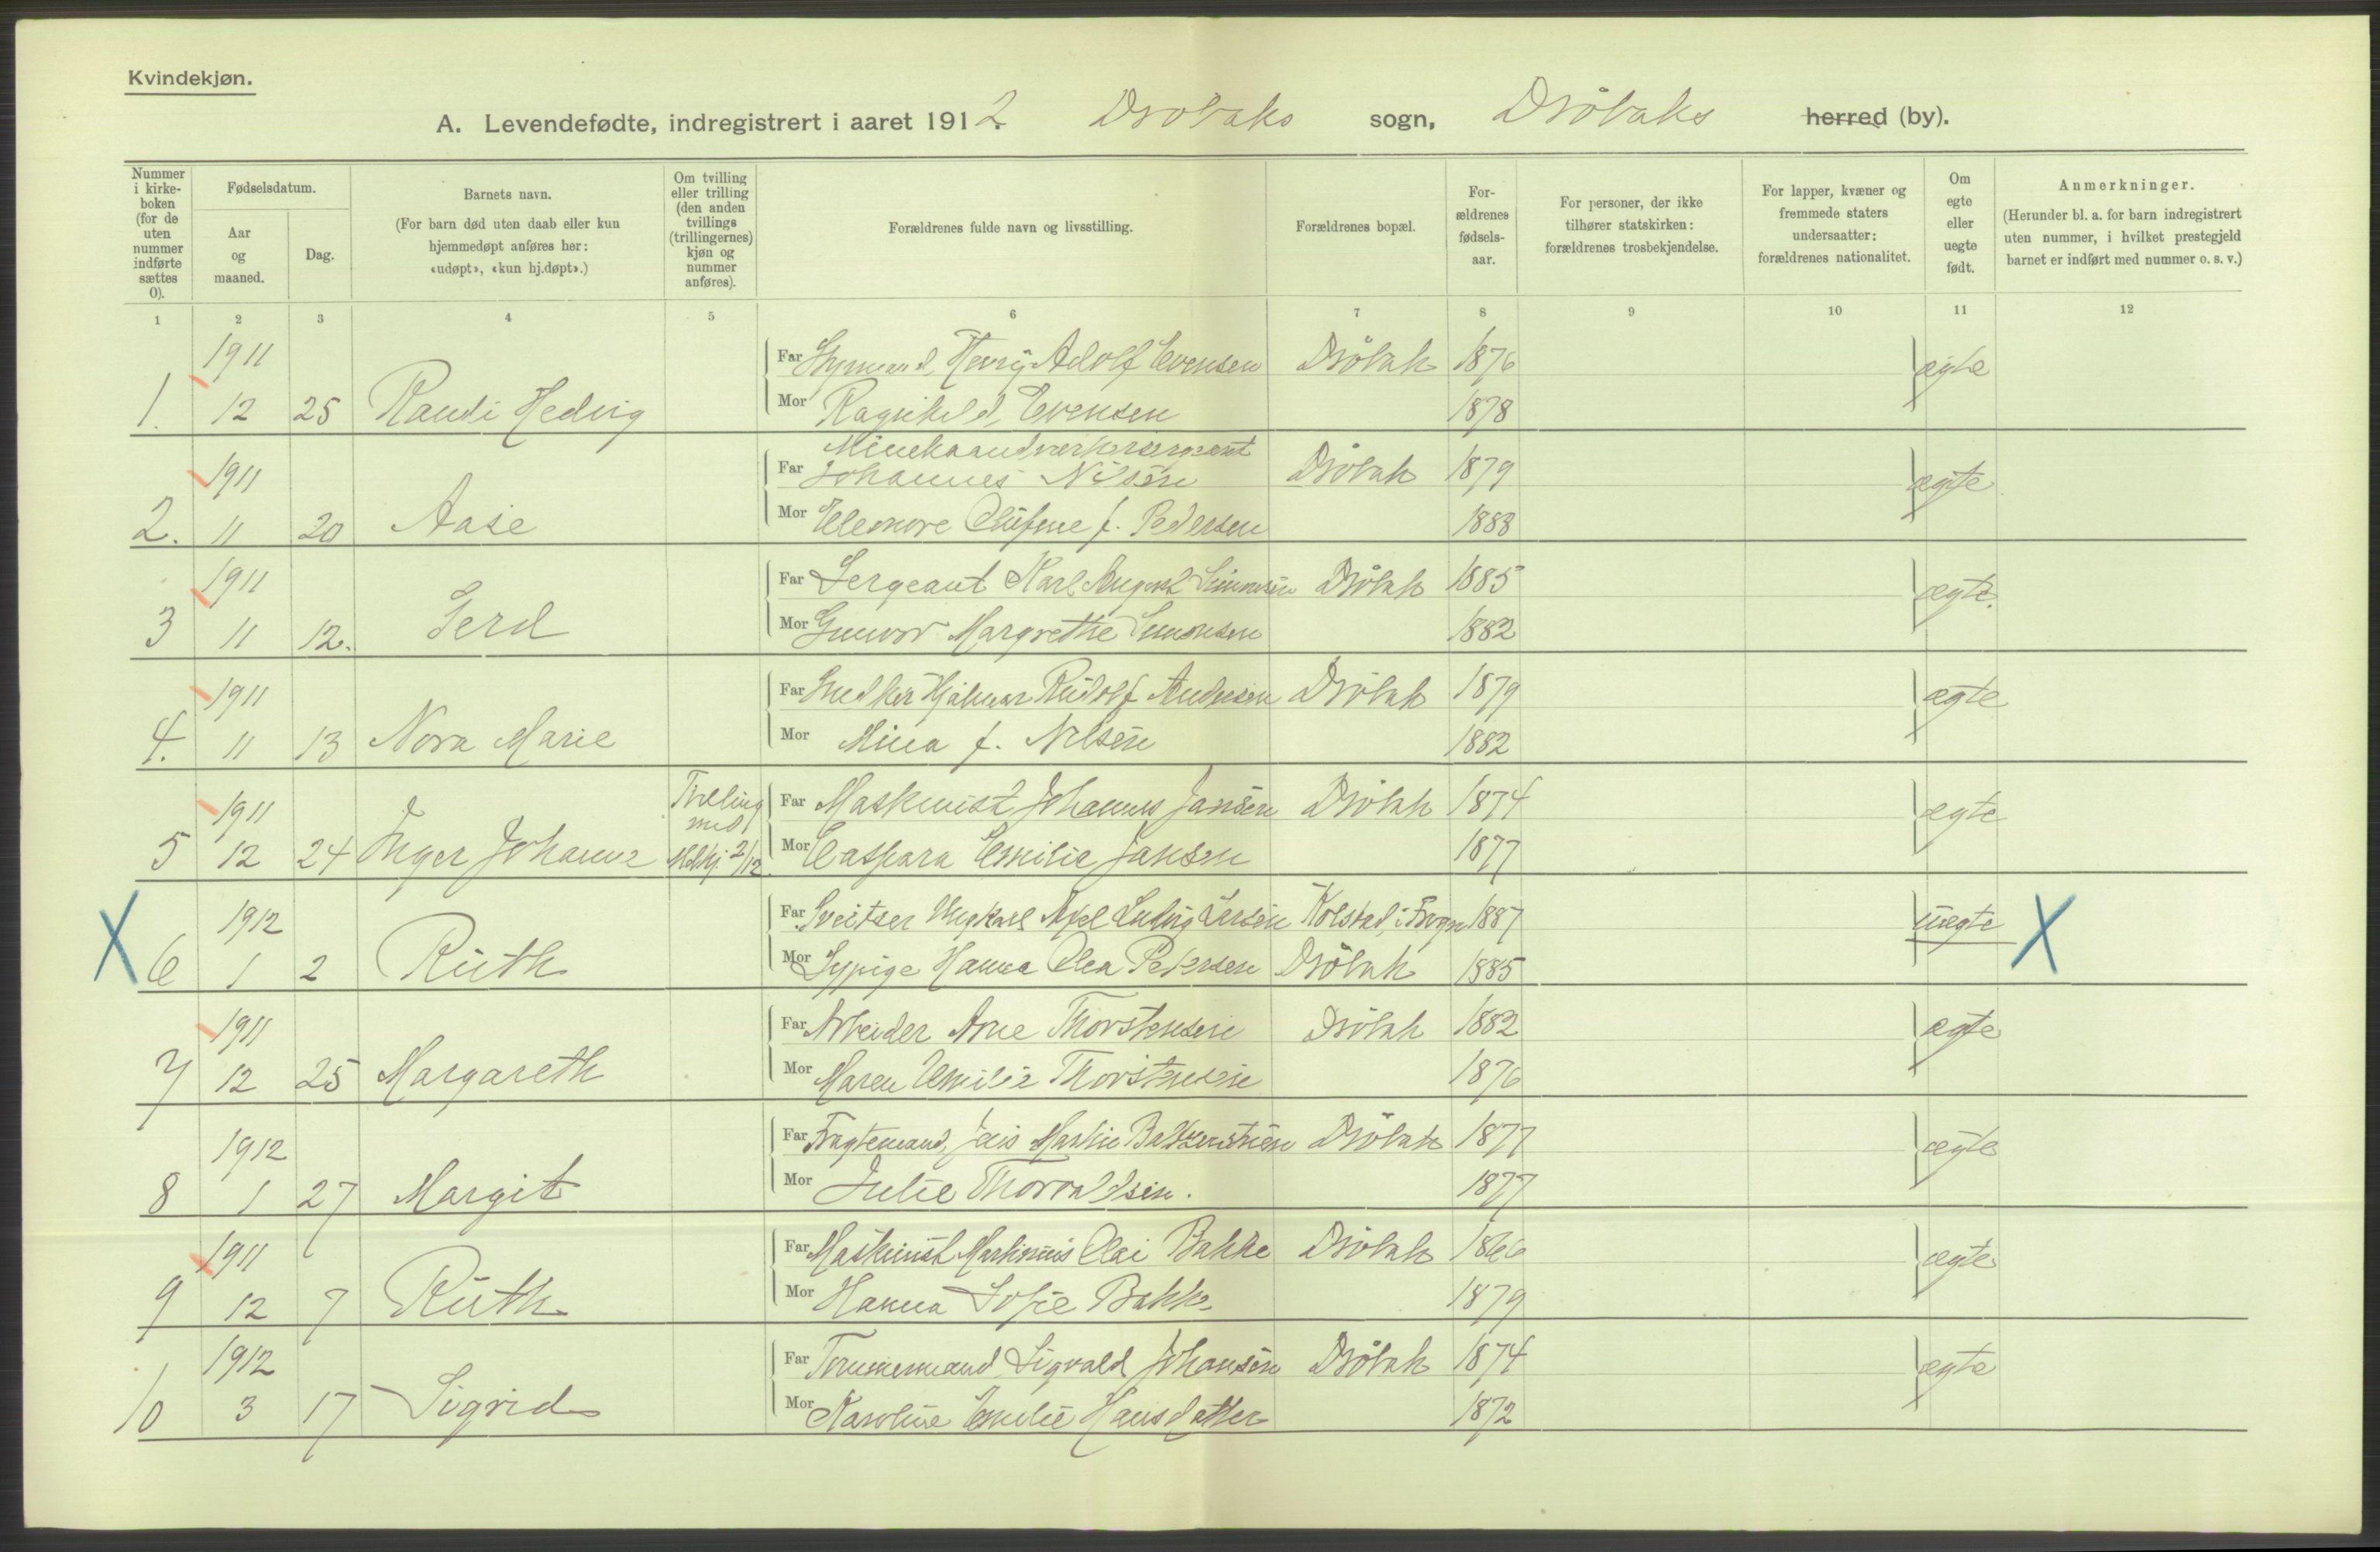 Kvindekjøn.
A. Levendefødte, indregistrert i aaret 1912. Drøbaks sogn, Drøbaks herred (by).
Nummer i kirkeboken (for de uten nummer indførte sættes 0).
Fødselsdatum.
Aar og maaned.
Dag.
Barnets navn.
(For barn død uten daab eller kun hjemmedøpt anføres her: «udøpt», «kun hj.døpt».)
Om tvilling eller trilling (den anden tvillings (trillingernes) kjøn og nummer anføres).
Forældrenes fulde navn og livsstilling.
Forældrenes bopæl.
Forældrenes fødselsaar.
For personer, der ikke tilhører statskirken: forældrenes trosbekjendelse.
For lapper, kvæner og fremmede staters undersaatter: forældrenes nationalitet.
Om egte eller uegte født.
Anmerkninger.
(Herunder bl. a. for barn indregistrert uten nummer, i hvilket prestegjeld barnet er indført med nummer o. s. v.)
1 2 3 4 5 6 7 8 9 10 11 12
1911 Far Henry Adolf Evensen Drøbak 1876 ægte
1. 12 25 Randi Hedvig Mor Ragnhild Evensen 1878
Minehaandverkersergeant
1911 Far Johannes Nilsen Drøbak 1879 ægte
2. 11 20 Aase Mor Eleonore Olufine f. Pedersen 1888
1911 Far Sergeant Karl August Simonsen Drøbak 1885 ægte.
3 11 12. Gerd Mor Gunvor Margrethe Simonsen 1882
1911 Far Snedker Hjalmar Rudolf Andresen Drøbak 1879 ægte
4. 11 13 Nora Marie Mor Mina f. Nilsen 1882
1911 Tvilling med Far Maskinist Johannes Jansen Drøbak 1874 ægte
5 12 24 Inger Johanne Mor Caspara Emilie Jansen 1877
1912 Far Sveitser Axel Ludvig Larsen Kolstad i Frogn 1887 uegte
X 6 1 2 Ruth Mor Sypige Hanna Olea Pedersen Drøbak 1885 X
1911 Far Arbeider Arne Thorstensen Drøbak 1882 ægte
7 12 25 Margareth Mor Maren Emilie Thorstensen 1876
1912 Far Fragtemand, Martin Drøbak 1877 ægte
8 1 27 Margit Mor Julie Thorvaldsen. 1877
1911 Far Maskinist Martinius Olai Bakke Drøbak 1866 ægte
9 12 7 Ruth Mor Hanna Sofie Bakke 1879
1912 Far Tømmermand Sigvald Johansen Drøbak 1874 ægte
10 3 17 Sigrid Mor Karoline Emilie Hansdatter 1872